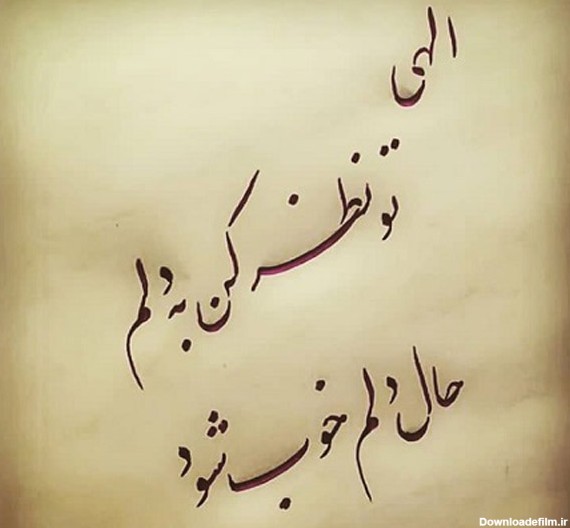 الهی
تو نظر کن به دلم
حال دلم خوب شود
Downloadefilm.ir